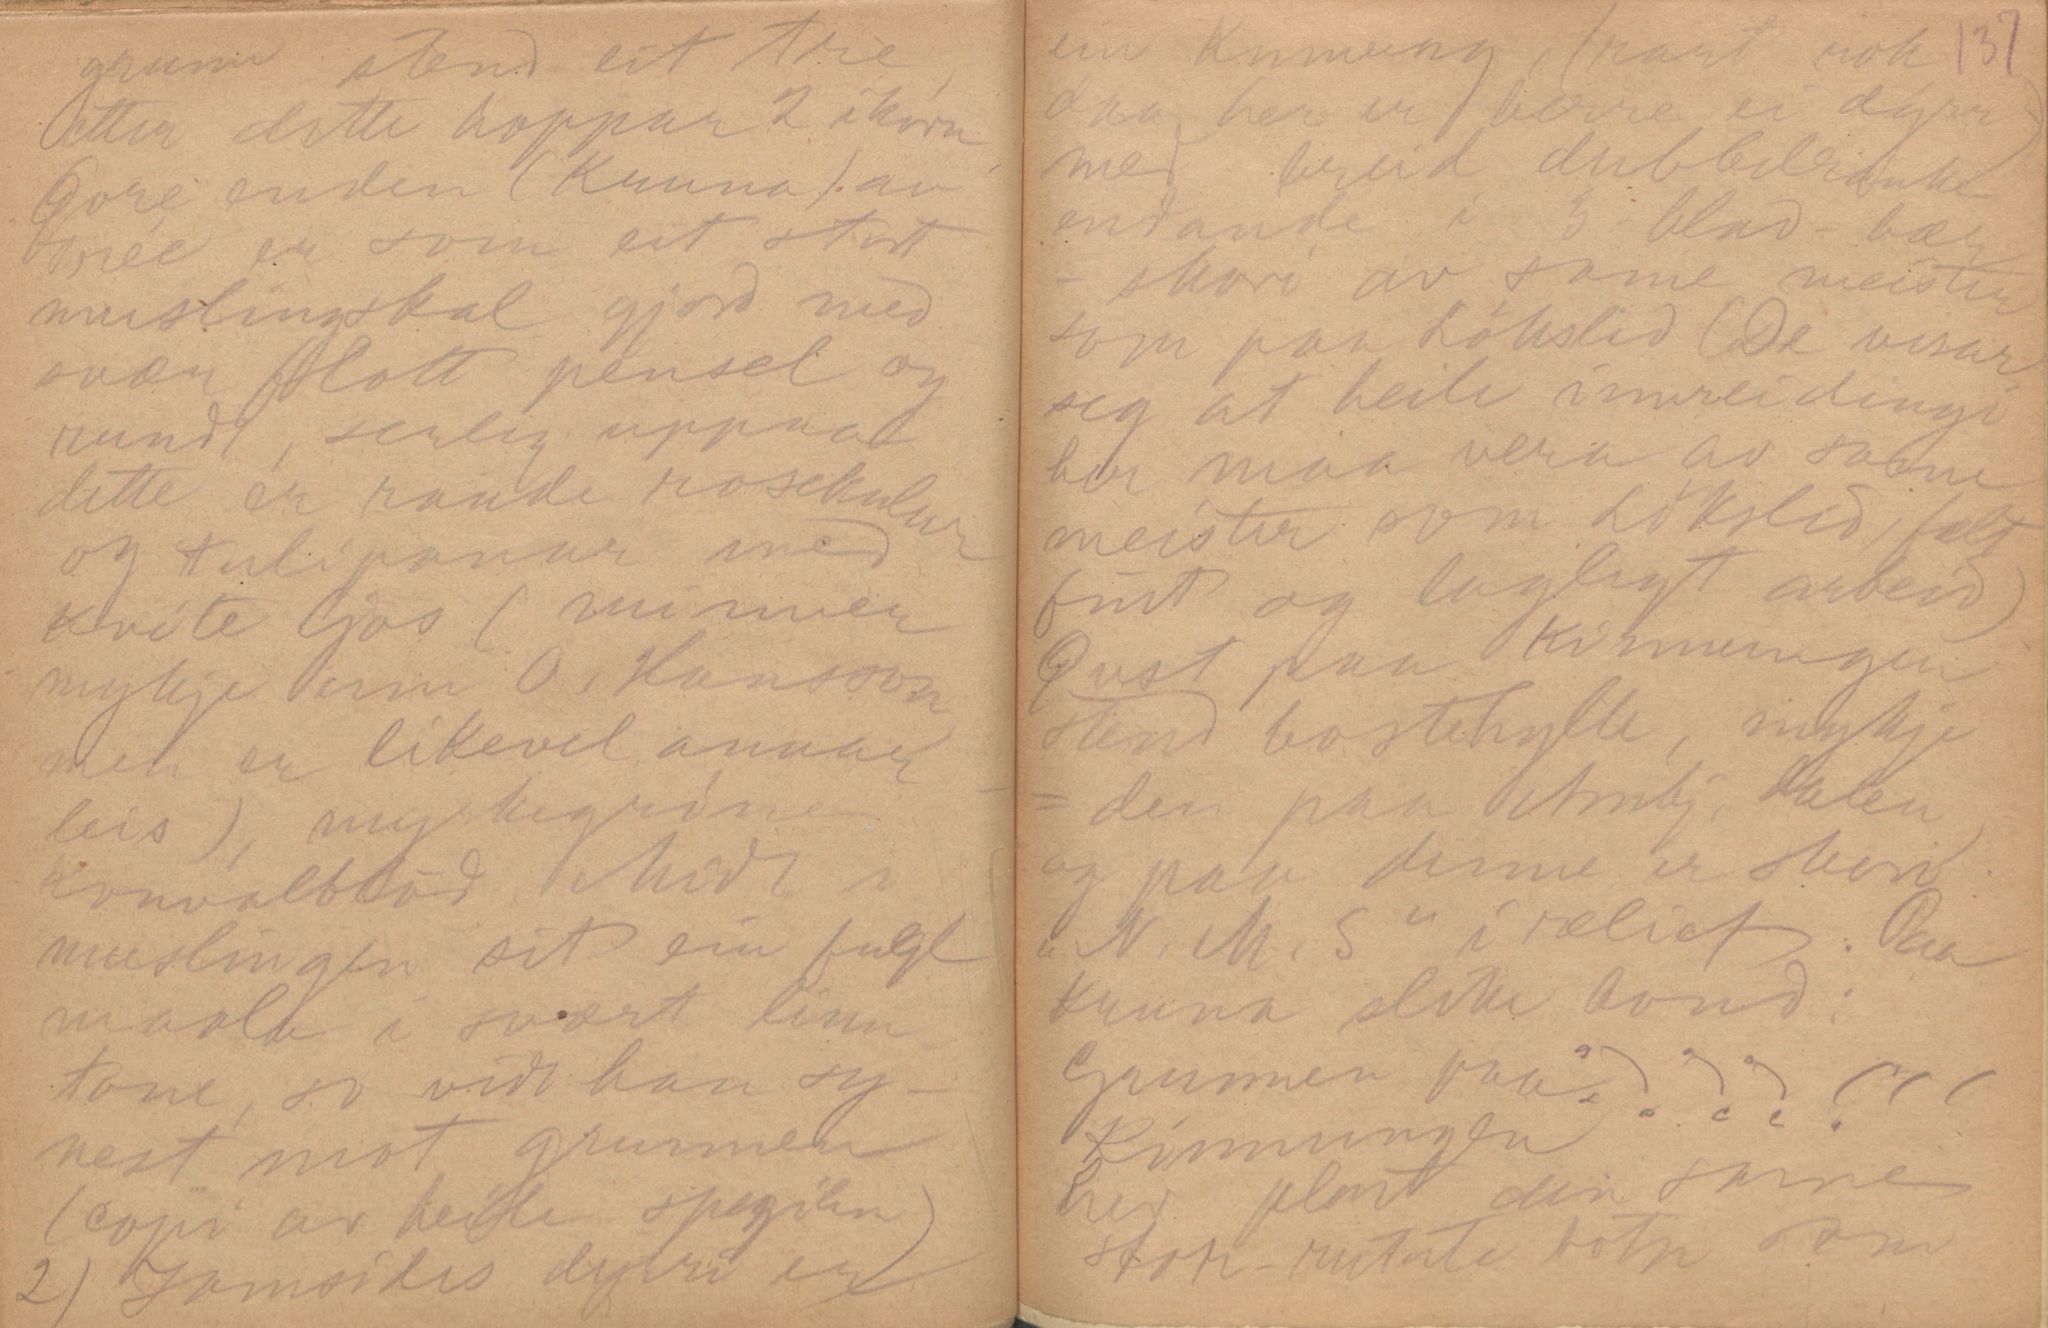 grunn stend eit tre,
etter dette hoppar 2 ikorn,
Øvre enden (Kruna) av
trèe er som eit stort
muslingskal gjord med
svær flott pensel og
rundt, serleg uppaa
dette er raude rosekular
og tulipanar med
kvite ljos (minner
mykje um O. Hansson
men er likevel annar
leis), myrkegröne
konvalblöd Midt i
muslingen sit ein fugl
maala i svært linn
tone, so vidt han sy-
nest mot grunnen
(copi av heile spegilen)
2) Jamsides dyrri er
137
ein Kinnung, (rart nok
daa her er berre ei dyrr)
med breid dubbelranke
endande i 3 blad-bær
- skori av same meister
som paa Lökslid (De visar
seg at heile innreidingi
her maa vera av same
meister som Lökslid, fælt
fint og laglegt arbeid)
Øvst paa Kinnungen
stend bostehylle, mykje
= den paa Ambj. Dalen
og paa denne er skori
"N. M. S" i relief. Paa
kruna slike bond:
Grunnen paa
Kinnungen
her plent den same
stor-rutute botn som